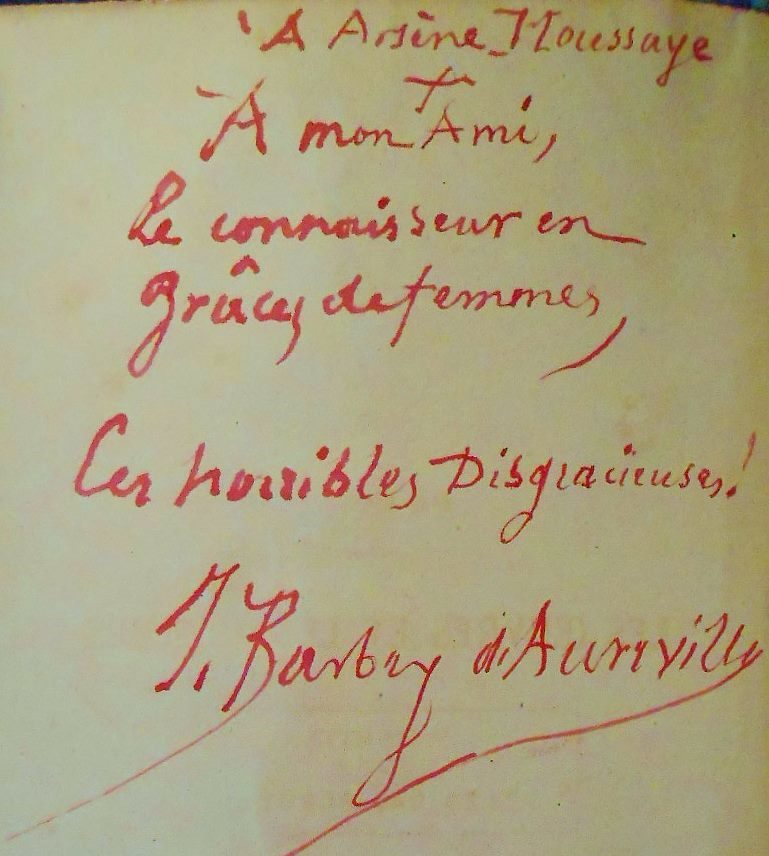 À Arsène Houssaye
À mon Ami,
Le connaisseur en
Grâces de femmes,
Ces horribles Disgracieuses!
J. Barbey d'Aurevilly